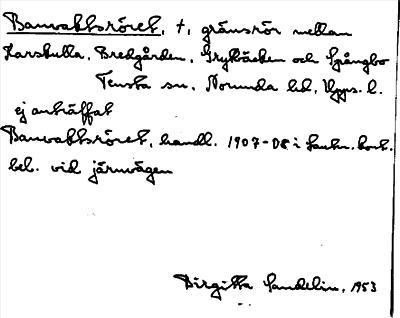 Banvaktsröret, †, gränsrör mellan
Karskulla, Bredgården, Frybäcken och Spångbo
Tensta sn, Norunda hd, Upps. l.
ej anträffat
Banvaktsröret, handl. 1907-08 i Lantm. kont.
bel. vid järnvägen
Birgitta Sandelin, 1953